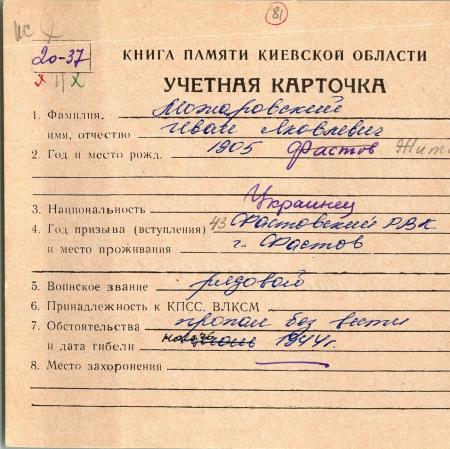 81
ИС
20-37
х II х
КНИГА ПАМЯТИ КИЕВСКОЙ ОБЛАСТИ
УЧЕТНАЯ КАРТОЧКА
1. Фамилия, Можаровский
имя, отчество Иван Яковлевич
2. Год и место рожд. 1905 Фастов Жит
3. Национальность Украинец
4. Год призыва (вступления) 43 Фастовский РВК
и место проживания г. Фастов
5. Воинское звание рядовой
6. Принадлежность к КПСС, ВЛКСМ
7. Обстоятельства пропал без вести
и дата гибели 1944г.
8. Место захоронения